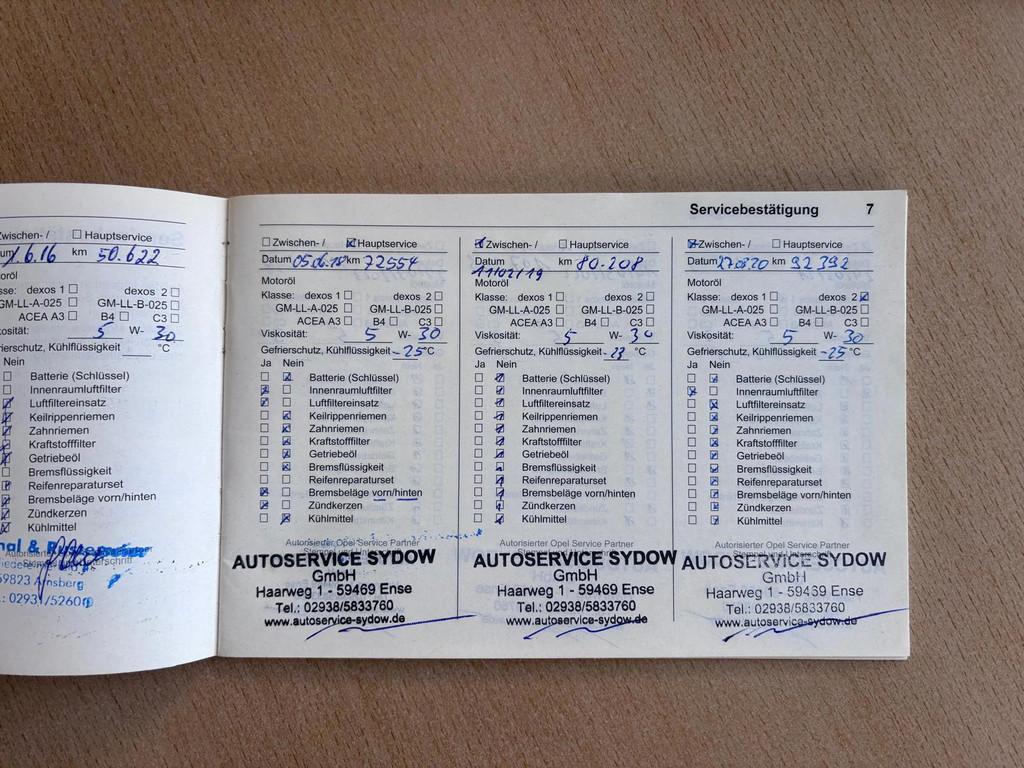 Zwischen- / ☐ Hauptservice
1.6.16 km 50.622
dexos 1 ☐ dexos 2 ☐
GM-LL-A-025 ☐ GM-LL-B-025 ☐
ACEA A3 ☐ B4 ☐ C3 ☐
5 W- 30
Kühlflüssigkeit °C
Nein
Batterie (Schlüssel)
Innenraumluftfilter
Luftfiltereinsatz
Keilrippenriemen
Zahnriemen
Kraftstofffilter
Getriebeöl
Bremsflüssigkeit
Reifenreparaturset
Bremsbeläge vorn/hinten
Zündkerzen
Kühlmittel
59823 Arnsberg
Servicebestätigung 7
☐ Zwischen- / ☒ Hauptservice
Datum 05.06.18 km 72554
Motoröl
Klasse: dexos 1 ☐ dexos 2 ☐
GM-LL-A-025 ☐ GM-LL-B-025 ☐
ACEA A3 ☐ B4 ☐ C3 ☐
Viskosität: 5 W- 30
Gefrierschutz, Kühlflüssigkeit -25 °C
Ja Nein
☐ ☒ Batterie (Schlüssel)
☒ ☐ Innenraumluftfilter
☒ ☐ Luftfiltereinsatz
☐ ☒ Keilrippenriemen
☐ ☒ Zahnriemen
☐ ☒ Kraftstofffilter
☐ ☒ Getriebeöl
☐ ☒ Bremsflüssigkeit
☐ ☐ Reifenreparaturset
☒ ☐ Bremsbeläge vorn/hinten
☒ ☐ Zündkerzen
☐ ☒ Kühlmittel
Autorisierter Opel Service Partner
Stempel und Unterschrift
AUTOSERVICE SYDOW
GmbH
Haarweg 1 - 59469 Ense
Tel.: 02938/5833760
www.autoservice-sydow.de
☒ Zwischen- / ☐ Hauptservice
Datum 11/02/19 km 80.208
Motoröl
Klasse: dexos 1 ☐ dexos 2 ☐
GM-LL-A-025 ☐ GM-LL-B-025 ☐
ACEA A3 ☐ B4 ☐ C3 ☐
Viskosität: 5 W- 30
Gefrierschutz, Kühlflüssigkeit °C
Ja Nein
☐ ☒ Batterie (Schlüssel)
☐ ☒ Innenraumluftfilter
☐ ☒ Luftfiltereinsatz
☐ ☒ Keilrippenriemen
☐ ☒ Zahnriemen
☐ ☒ Kraftstofffilter
☐ ☒ Getriebeöl
☐ ☒ Bremsflüssigkeit
☐ ☒ Reifenreparaturset
☐ ☒ Bremsbeläge vorn/hinten
☐ ☒ Zündkerzen
☐ ☒ Kühlmittel
Autorisierter Opel Service Partner
Stempel und Unterschrift
AUTOSERVICE SYDOW
GmbH
Haarweg 1 - 59469 Ense
Tel.: 02938/5833760
www.autoservice-sydow.de
☒ Zwischen- / ☐ Hauptservice
Datum 27.08.20 km 92392
Motoröl
Klasse: dexos 1 ☐ dexos 2 ☒
GM-LL-A-025 ☐ GM-LL-B-025 ☐
ACEA A3 ☐ B4 ☐ C3 ☐
Viskosität: 5 W- 30
Gefrierschutz, Kühlflüssigkeit -25 °C
Ja Nein
☐ ☒ Batterie (Schlüssel)
☒ ☐ Innenraumluftfilter
☐ ☒ Luftfiltereinsatz
☐ ☒ Keilrippenriemen
☐ ☒ Zahnriemen
☐ ☒ Kraftstofffilter
☐ ☒ Getriebeöl
☐ ☒ Bremsflüssigkeit
☐ ☒ Reifenreparaturset
☐ ☒ Bremsbeläge vorn/hinten
☐ ☒ Zündkerzen
☐ ☒ Kühlmittel
Autorisierter Opel Service Partner
Stempel und Unterschrift
AUTOSERVICE SYDOW
GmbH
Haarweg 1 - 59469 Ense
Tel.: 02938/5833760
www.autoservice-sydow.de